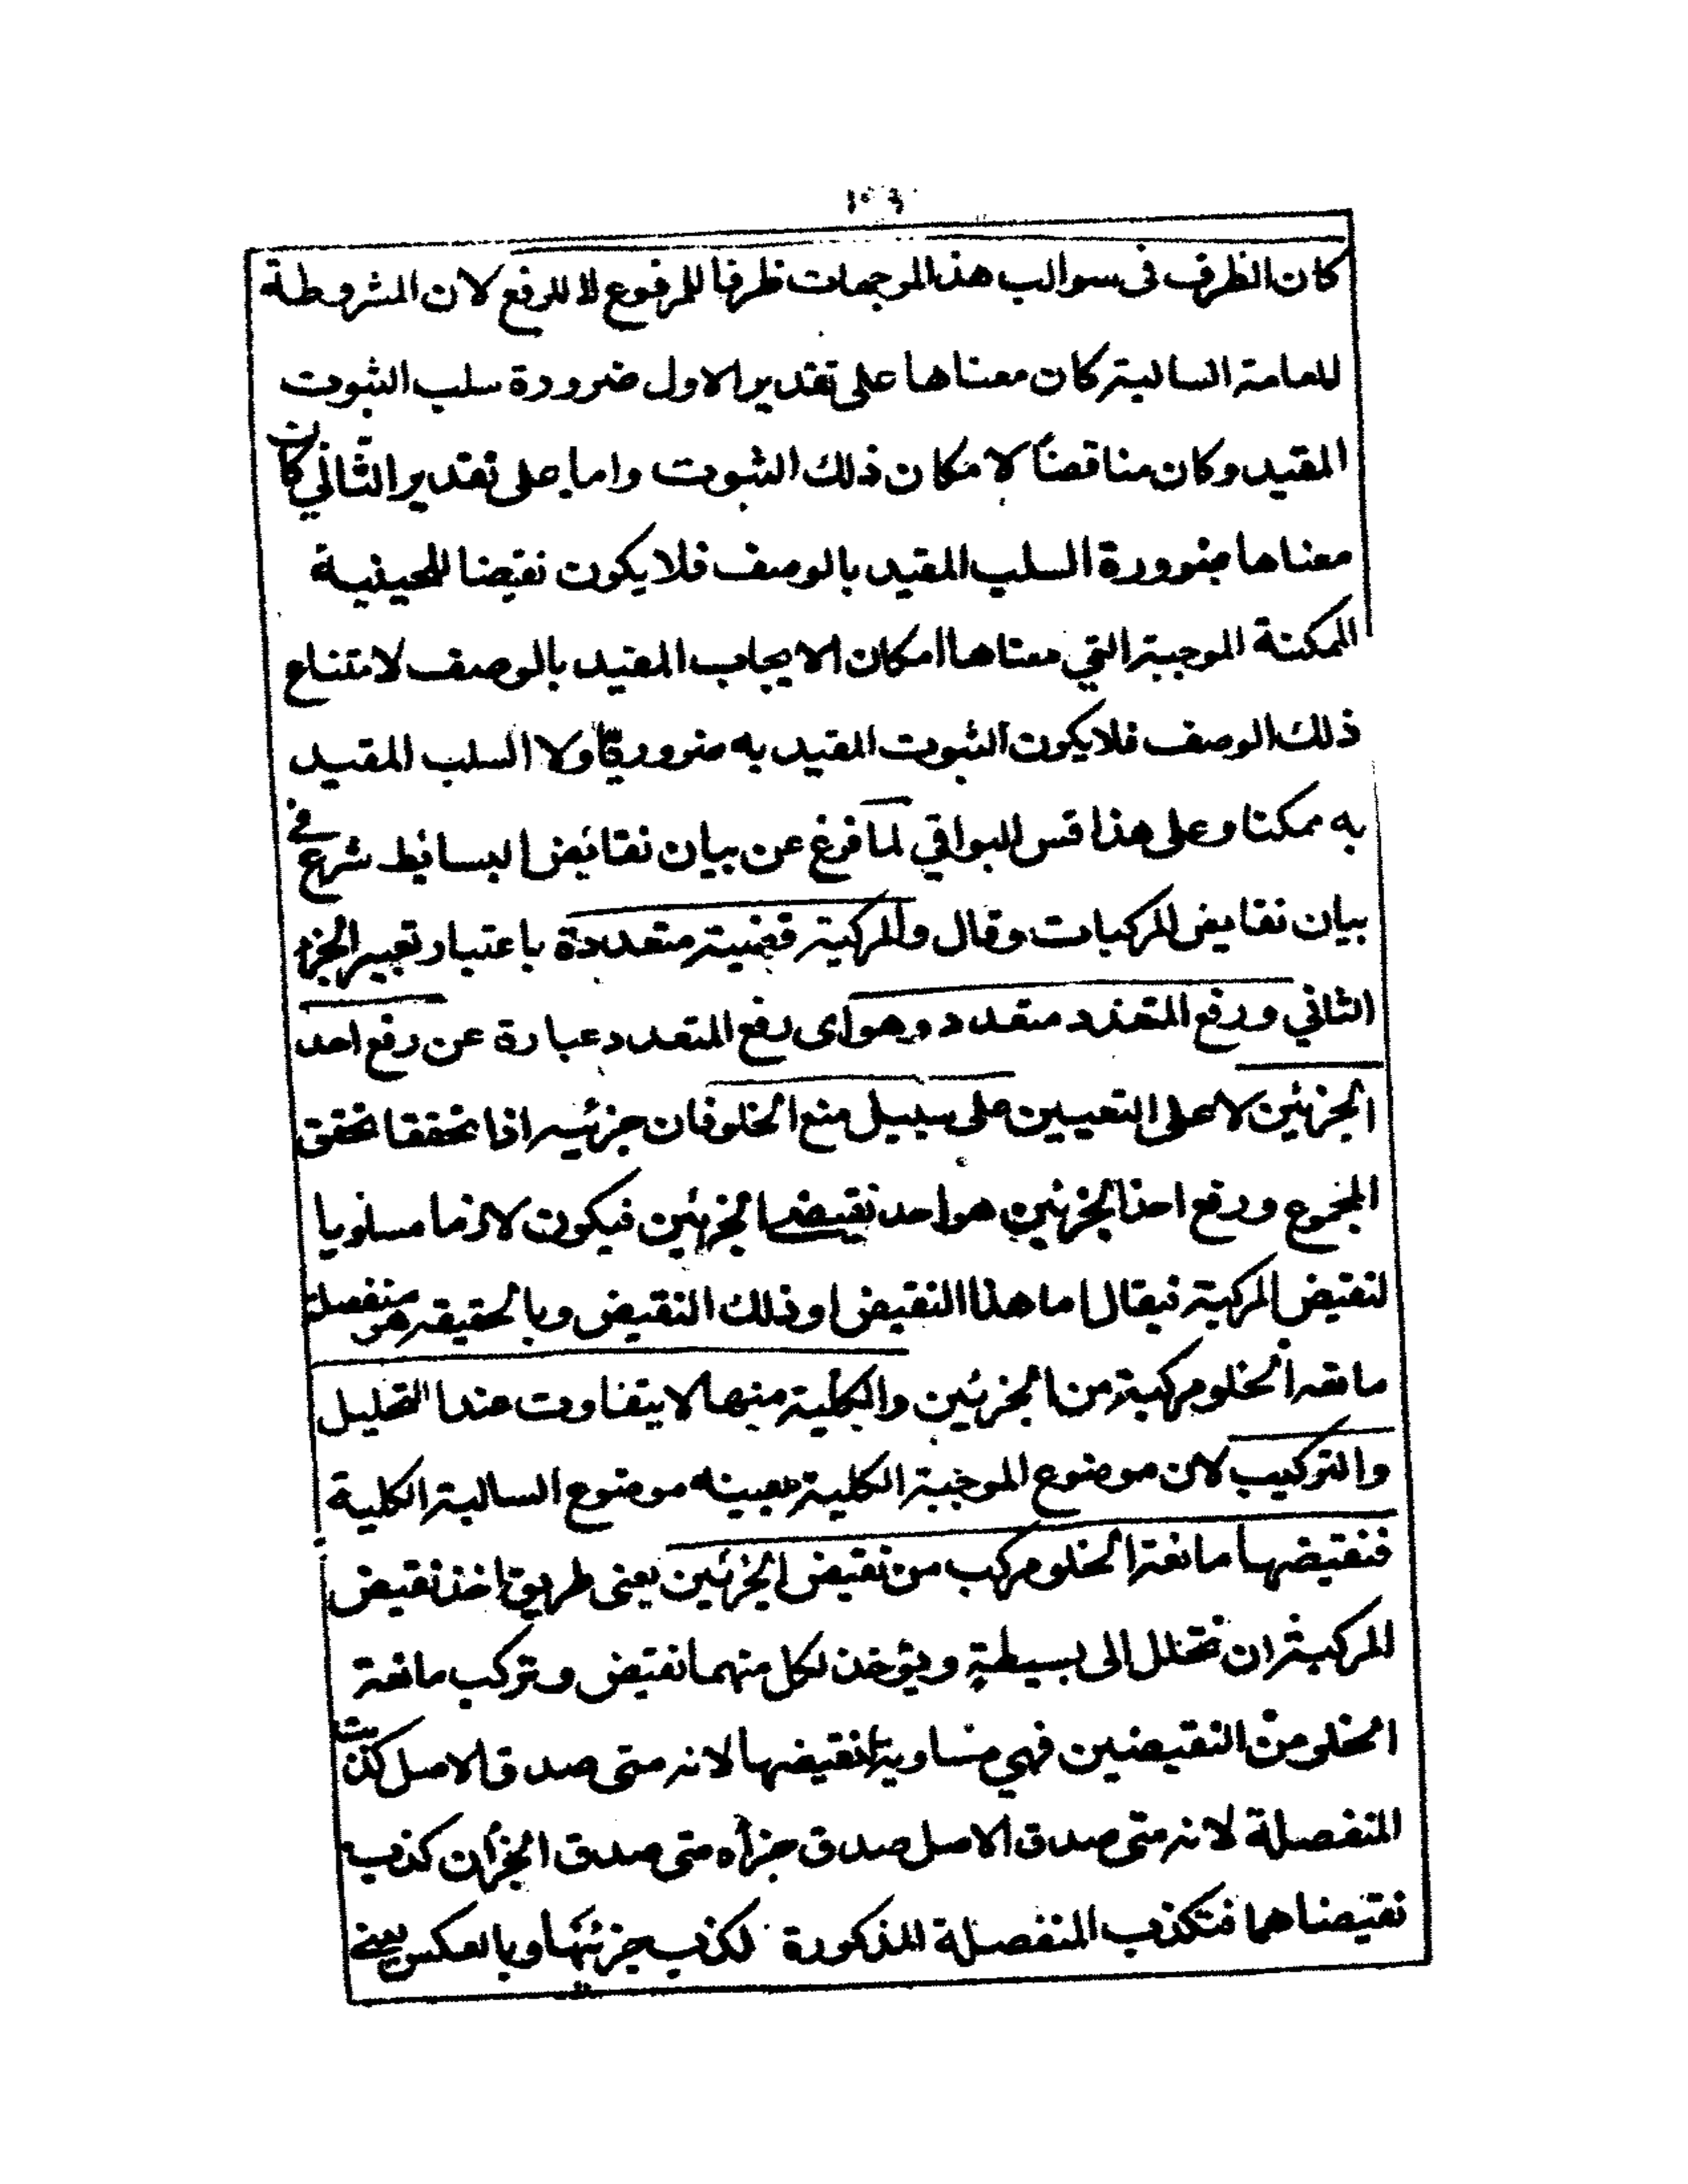 ١٠٩
كان الظرف فى سوالب هذا الموجهات ظرفا للمرفوع لا للرفع لان المشروطة
للعامة السالبة كان معناها على تقدير الاول ضرورة سلب الثبوت
المقيد وكان مناقضًا لامكان ذلك الثبوت واما على تقدير الثاني كان
معناها ضرورة السلب المقيد بالوصف فلا يكون نقيضا للحينية
الممكنة الموجبة التي معناها امكان الايجاب المقيد بالوصف لامتناع
ذلك الوصف فلا يكون الثبوت المقيد به ضروريًا ولا السلب المقيد
به ممكنا وعلى هذا قس البواقي لما فرغ عن بيان نقائض البسائط شرع في
بيان نقايض المركبات وقال والمركبة قضية متعددة باعتبار تعبير الجزء
الثاني ورفع المتعدد متعدد وهو اى رفع المتعدد عبارة عن رفع احد
الجزئين لا على التعيين على سبيل منع الخلو فان جزئيه اذا تحققا تحقق
المجموع ورفع احد الجزئين هو احد نقيضا الجزئين فيكون لازما مساويا
لنقيض المركبة فيقال اما هذا النقيض او ذلك النقيض وبالحقيقة هو منفصلة
مانعة الخلو مركبة من الجزئين والكلية منها لا يتفاوت عند التحليل
والتركيب لان موضوع الموجبة الكلية بعينه موضوع السالبة الكلية
فنقيضها مانعة الخلو مركب من نقيض الجزئين يعنى طريق اخذ نقيض
المركبة ان تحلل الى بسيطة ويؤخذ لكل منهما نقيض وتركب مانعة
الخلو من النقيضين فهي مساوية لنقيضها لانه متى صدق الاصل كذبت
المنفصلة لانه متى صدق الاصل صدق جزأه متى صدق الجزأن كذب
نقيضاهما فتكذب المنفصلة المذكورة لكذب جزئيها وبالعكس يعنے